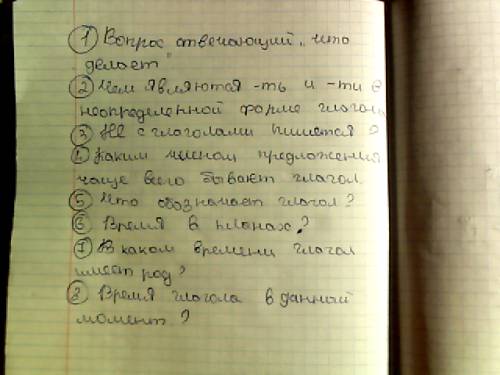 1 Вопрос, отвечающий „что
делает"
2 Чем являются -ть и -ти в
неопределенной форме глагол
3 НЕ с глаголами пишется?
4 Каким членом предложения
чаще всего бывает глагол
5 Что обозначает глагол?
6 Время в планах?
7 В каком времени глагол
имеет род?
8 Время глагола в данный
момент?